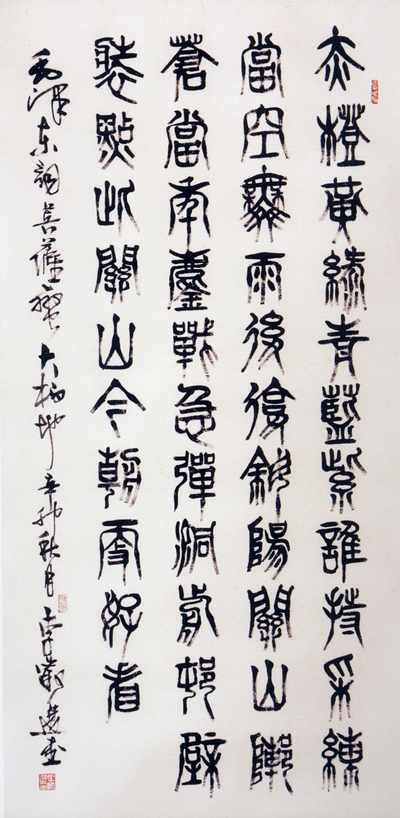 赤橙黄綠青藍紫誰持采練
當空舞雨後復斜陽關山陣
蒼當年鏖戰急彈洞前邨壁
裝點此關山今朝更好看
毛澤東詞菩薩蠻大柏地辛卯秋月李書